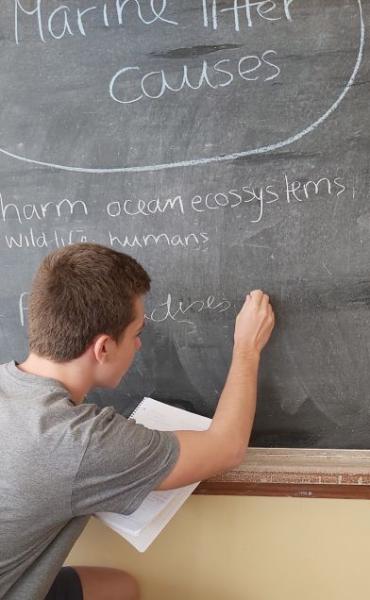 Marine litter
causes
harm ocean ecossystems,
wildlife humans